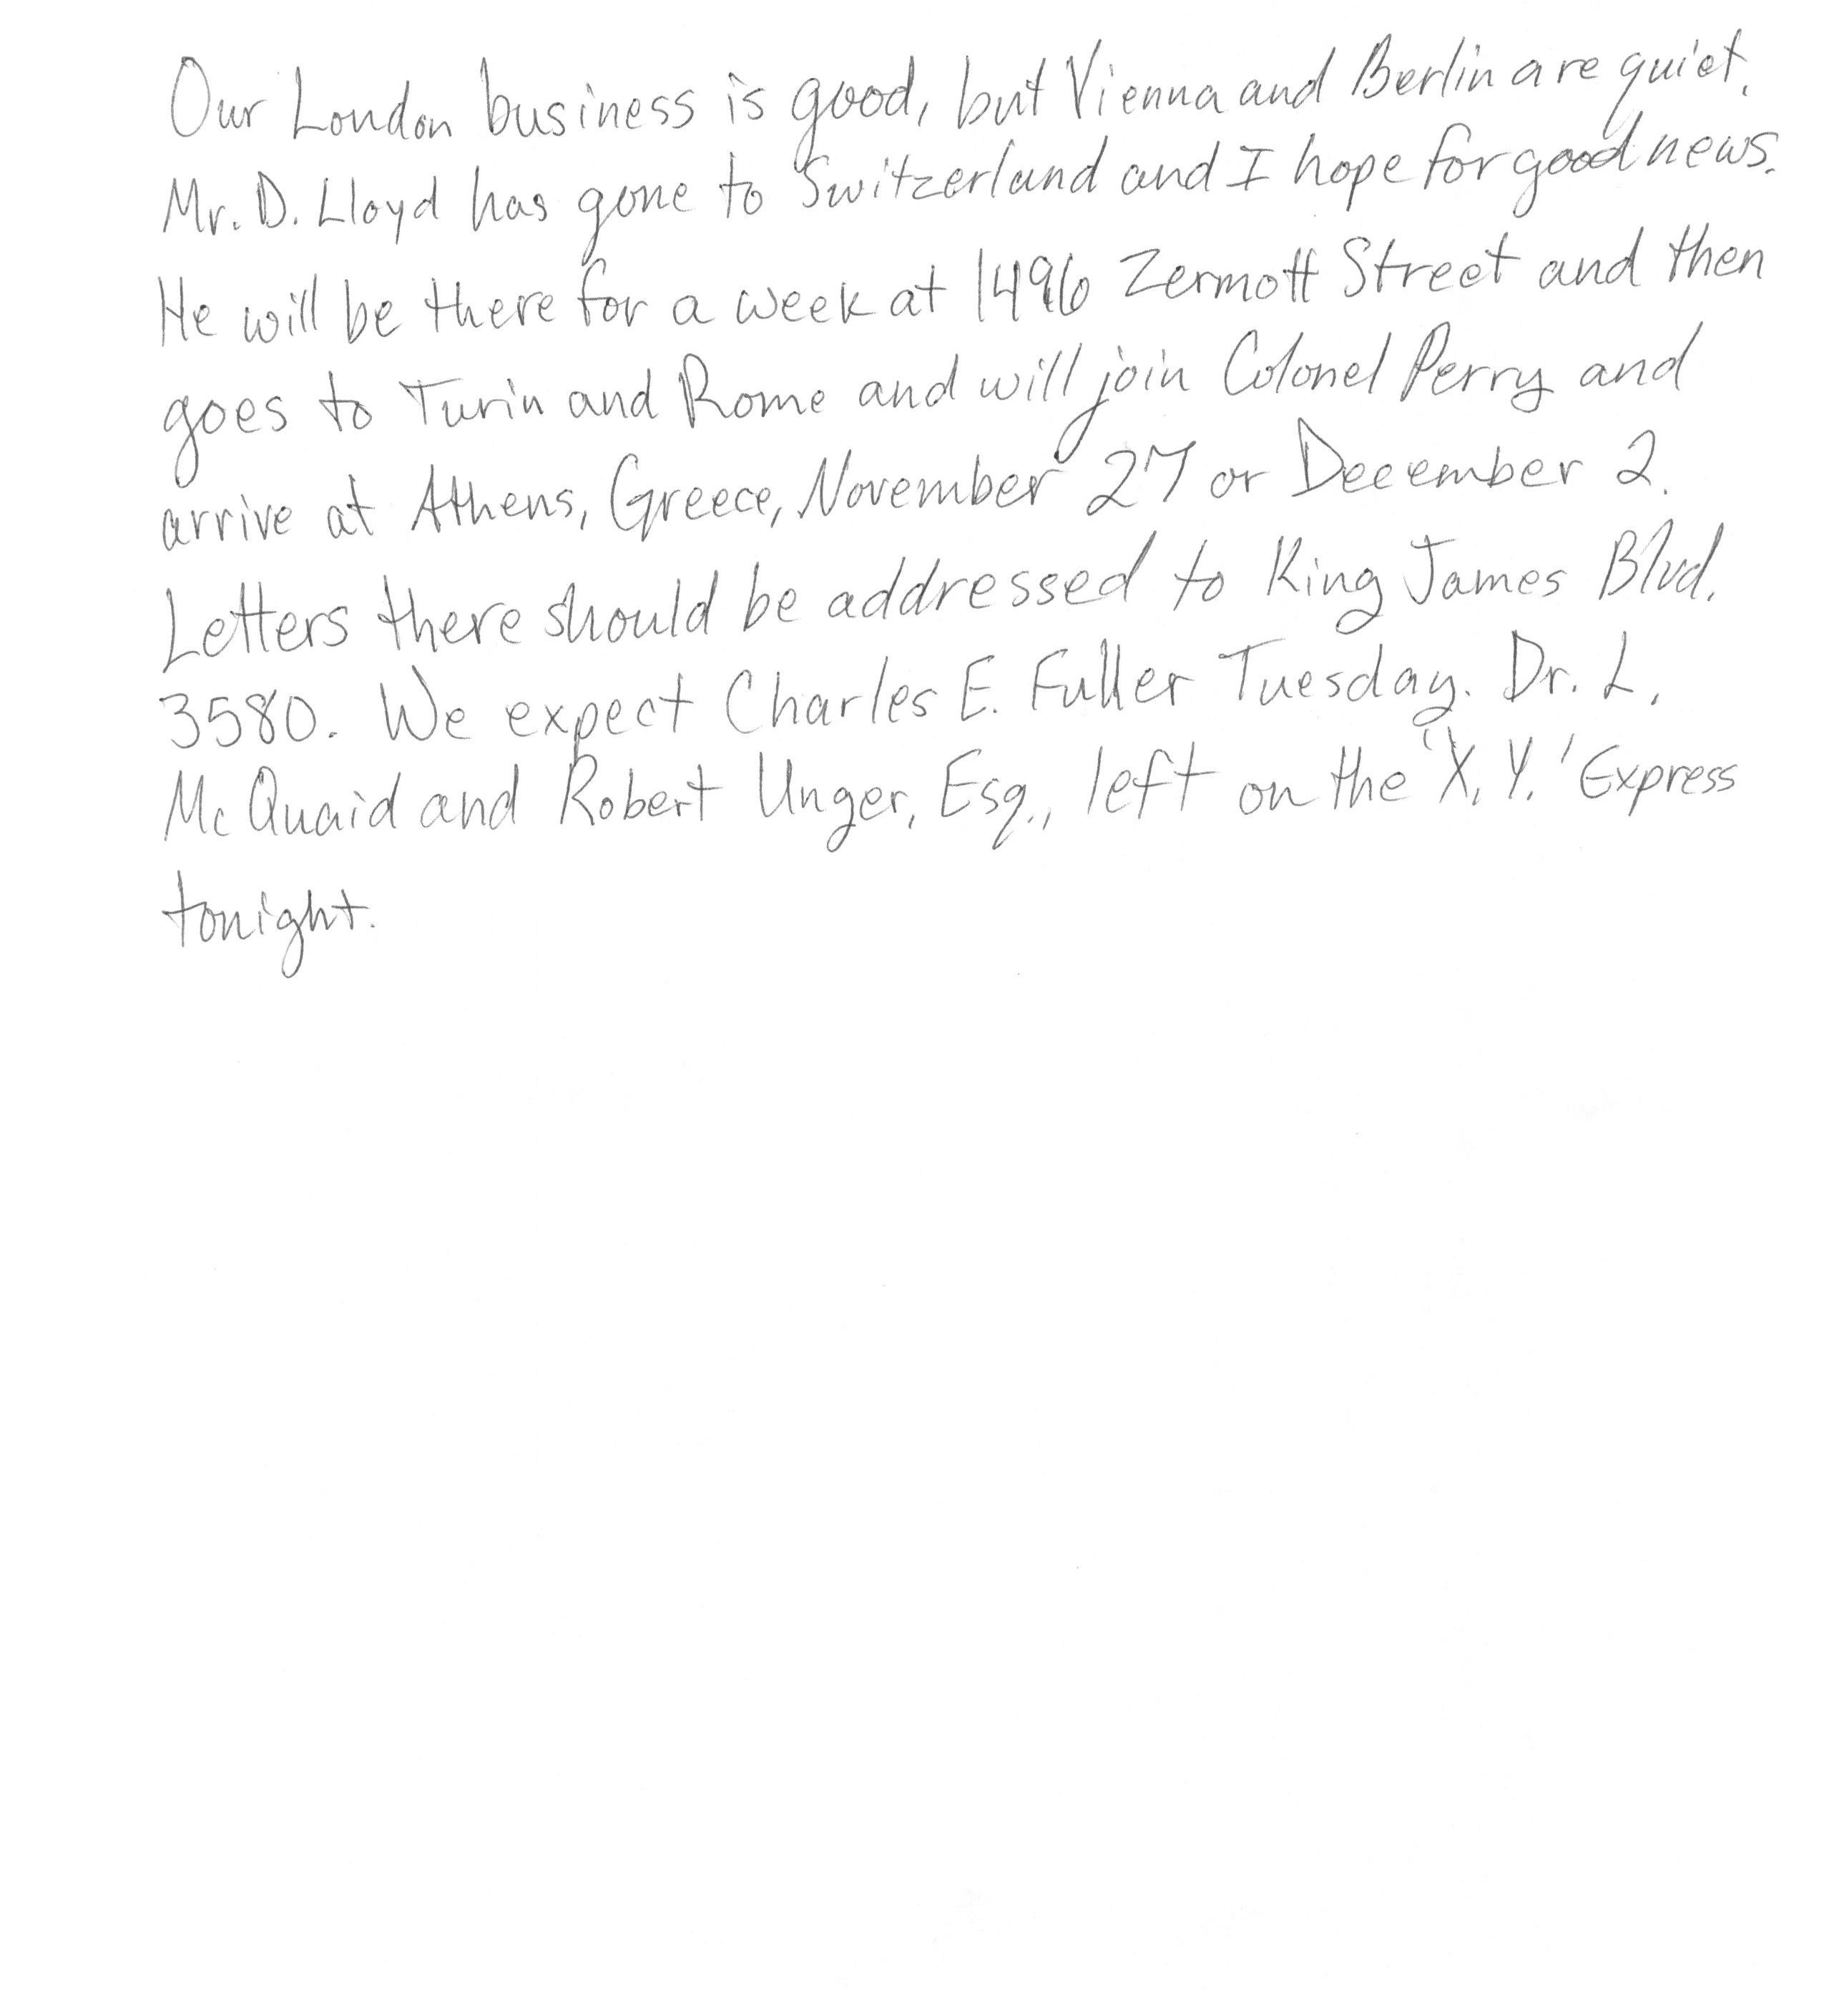 Our London business is good, but Vienna and Berlin are quiet.
Mr. D. Lloyd has gone to Switzerland and I hope for good news.
He will be there for a week at 1496 Zermott Street and then
goes to Turin and Rome and will join Colonel Perry and
arrive at Athens, Greece, November 27 or December 2.
Letters there should be addressed to King James Blvd.
3580. We expect Charles E. Fuller Tuesday. Dr. L.
McQuaid and Robert Unger, Esq., left on the 'X. Y.' Express
tonight.